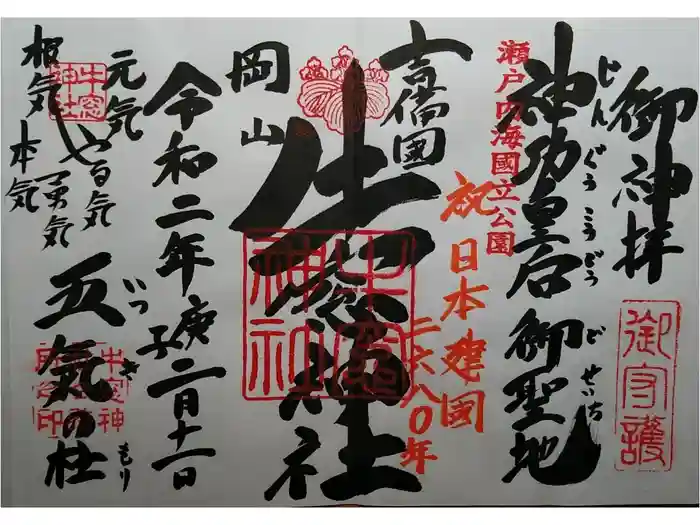 御神拝
御守護
神功皇后御聖地
じんぐうこうごう
ど せいち
瀬戸内海國立公園
祝日本建国
二六八〇年
吉備国
牛窓神社
牛窓神社
岡山
令和二年庚子二月十一日
元気
やる気
勇気
根気
本気
牛窓神社
五気の杜
いつき もり